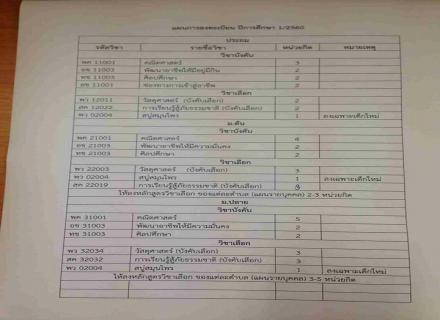 แผนการลงทะเบียน ปีการศึกษา 1/2560
ประถม
รหัสวิชา รายชื่อวิชา หน่วยกิต หมายเหตุ
วิชาบังคับ
พค 11001 คณิตศาสตร์ 3
อช 11003 พัฒนาอาชีพให้มีอยู่มีกิน 2
ทช 11003 ศิลปศึกษา 2
อช 11001 ช่องทางการเข้าสู่อาชีพ 2
วิชาเลือก
พว 12011 วัสดุศาสตร์ (บังคับเลือก) 2
สค 12022 การเรียนรู้สู้ภัยธรรมชาติ (บังคับเลือก) 2
พว 02004 สบู่สมุนไพร 1 ลงเฉพาะเด็กใหม่
ม.ต้น
วิชาบังคับ
พค 21001 คณิตศาสตร์ 4
อช 21003 พัฒนาอาชีพให้มีความเข้มแข็ง 2
ทช 21003 ศิลปศึกษา 2
วิชาเลือก
พว 22003 วัสดุศาสตร์ (บังคับเลือก) 3
พว 02004 สบู่สมุนไพร 1 ลงเฉพาะเด็กใหม่
สค 22019 การเรียนรู้สู้ภัยธรรมชาติ (บังคับเลือก) 3
ให้ลงหลักสูตรวิชาเลือก ของแต่ละตำบล (แผนรายบุคคล) 2-3 หน่วยกิต
ม.ปลาย
วิชาบังคับ
พค 31001 คณิตศาสตร์ 5
อช 31003 พัฒนาอาชีพให้มีความมั่นคง 2
ทช 31003 ศิลปศึกษา 2
วิชาเลือก
พว 32034 วัสดุศาสตร์ (บังคับเลือก) 3
สค 32032 การเรียนรู้สู้ภัยธรรมชาติ (บังคับเลือก) 3
พว 02004 สบู่สมุนไพร 1 ลงเฉพาะเด็กใหม่
ให้ลงหลักสูตรวิชาเลือก ของแต่ละตำบล (แผนรายบุคคล) 3-5 หน่วยกิต